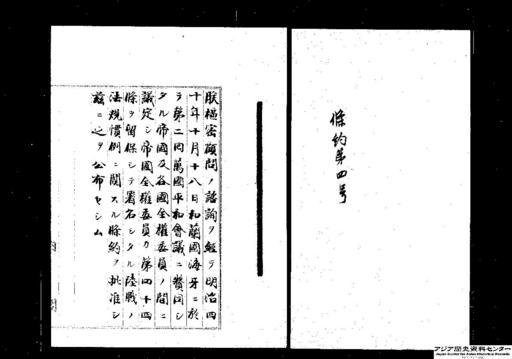 條約第四号
朕樞密顧問ノ諮詢ヲ經テ明治四
十年十月十八日和蘭國海牙ニ於
テ第二回萬國平和會議ニ賛同シ
タル帝國及各國全權委員ノ間ニ
議定シ帝國全權委員カ第四十四
條ヲ留保シテ署名シタル陸戰ノ
法規慣例ニ關スル條約ヲ批准シ
茲ニ之ヲ公布セシム
内閣
アジア歴史資料センター
Japan Center for Asian Historical Records